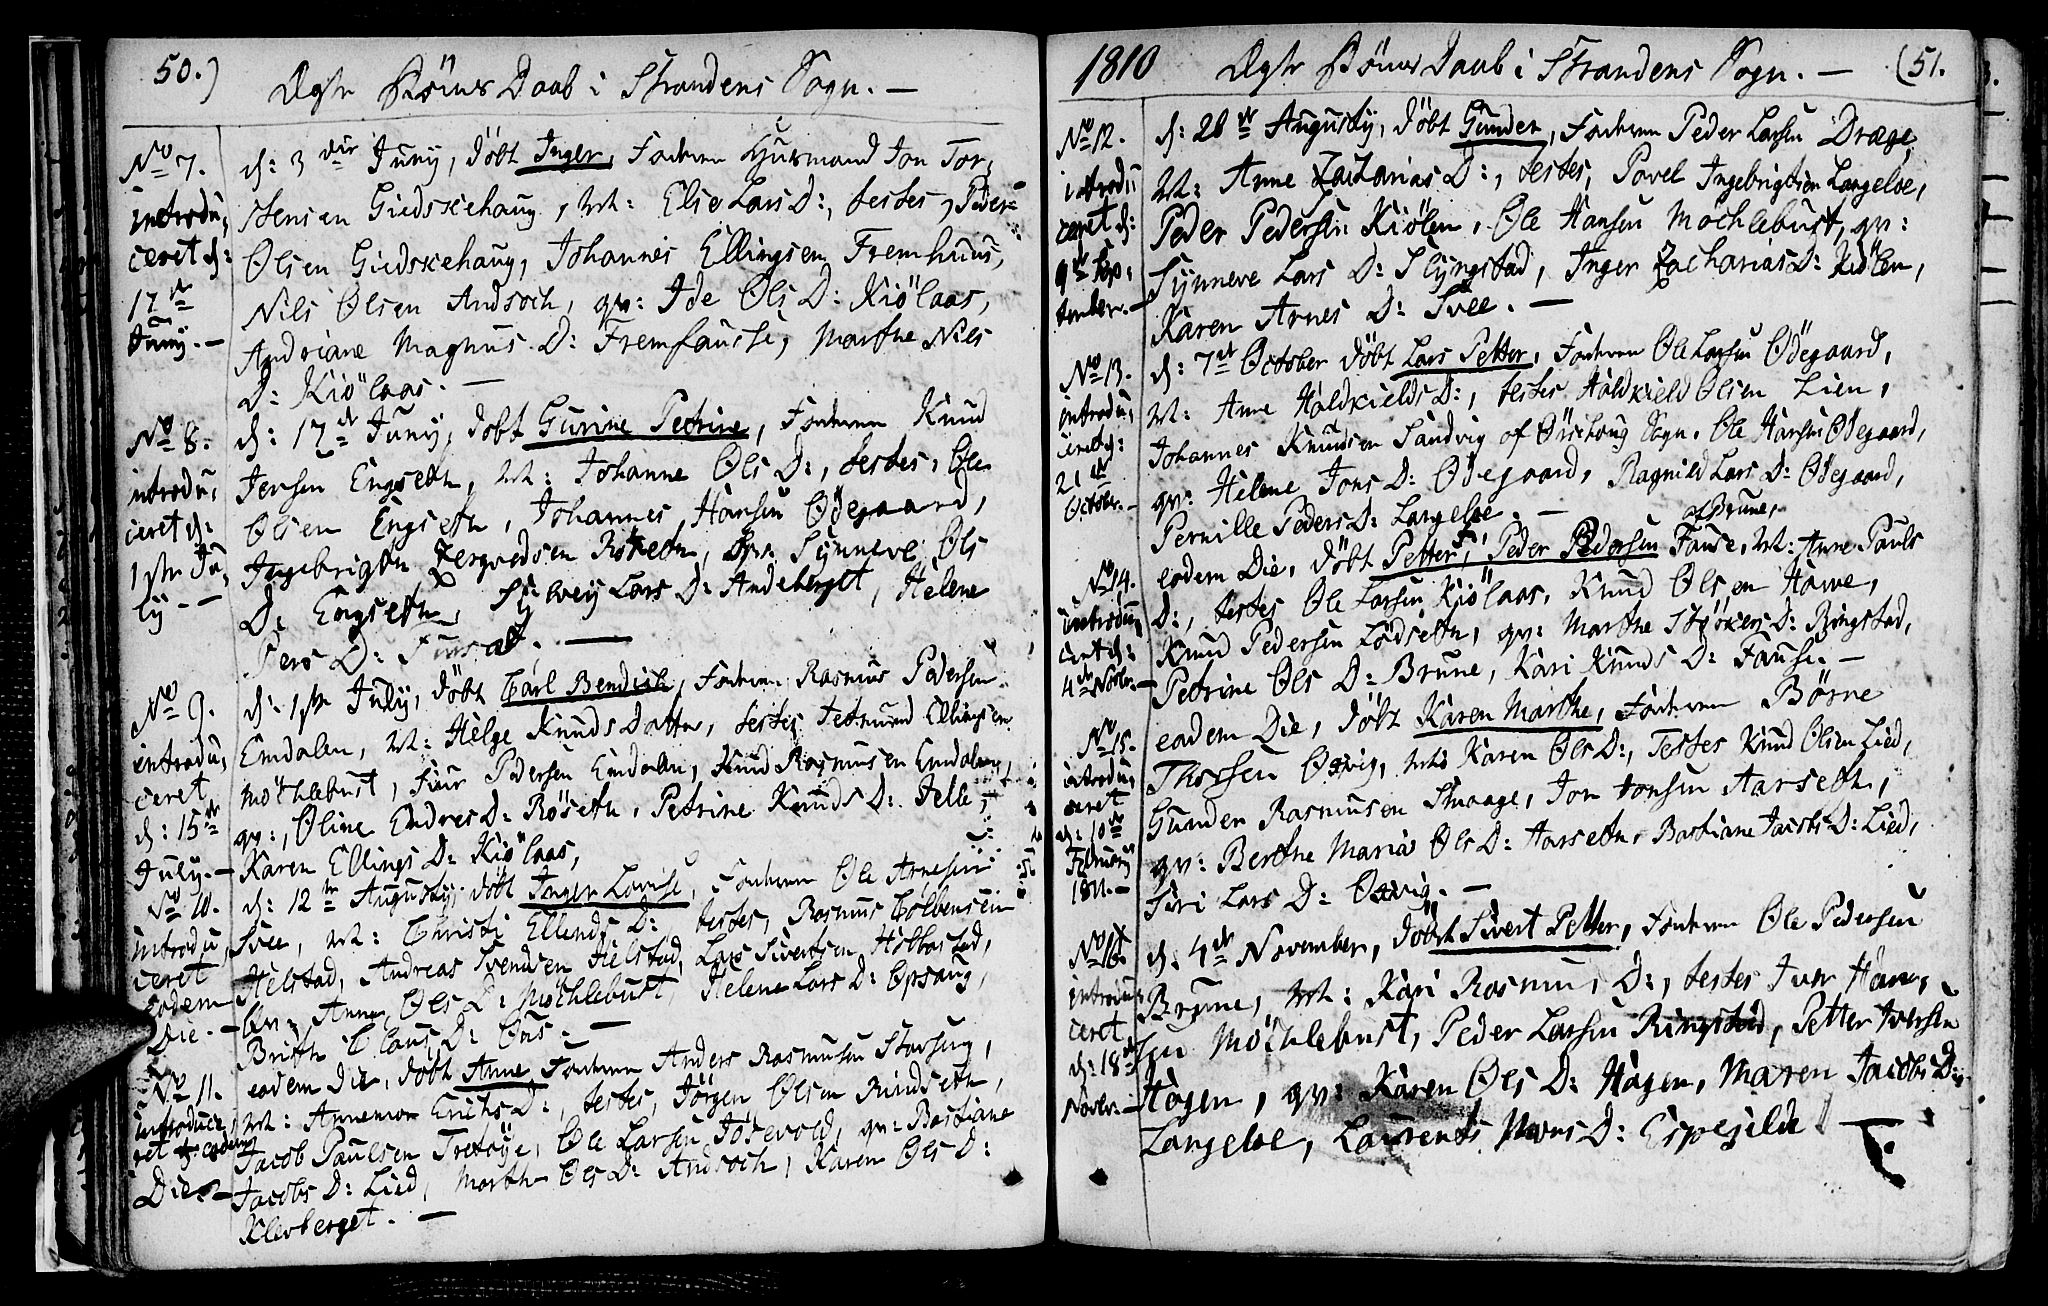 50.)
Ægte Børns Daab i Strandens Sogn. —
No 7.
introdu,
ceret d:
17de
Juny. —
d: 3die Juny, døbt Inger, Forældre Huusmand Jon Tor,
stensen Giedskehaug, Mod: Else Lars D:, testes, Peder
Olsen Giedskehaug, Johannes Ellingsen Fremhuus,
Nils Olsen Andsoch, qv: Ide Ols D: Kiölaas,
Andriane Magnus D: Fremfausse, Marthe Nils
D: Kiölaas. —
No 8.
introdu,
ceret d:
1ste Ju,
ly. —
d: 17de Juny, döbt Gurine Petrine, Forældre Knud
Jensen Engseth, Mod: Johanne Ols D:, testes, Ole
Olsen Engseth, Johannes Hansen Ödegaard,
Ingebrigt Röseth, qv: Synneve Ols
D: Engseth, Lars D: Andeberget, Helene
Pers D: Fursæt. —
No 9.
introdu,
ceret
d: 15de
July. —
d: 1ste July, döbt Carl Bendich, Forældre Rasmus Pedersen
Emdalen, Mod: Helge Knuds Datter, testes Tetmund Ellingsen
Möchlebust, Siur Pedersen Emdalen, Knud Rasmusen Emdalen,
qv:, Oline Endres D: Röseth, Petrine Knuds D: Helle,
Karen Ellings D: Kiölaas,
No 10.
introdu,
ceret
eodem
Die. —
d: 12te Augusty, döbt Inger Lovise, Forældre Ole Arnesen
Svee, Mod: Christi Ellends D:, testes, Rasmus Colbensen
Helstad, Andreas Svendsen Helstad, Lars Sivertsen Holkestad,
Qv: Anne Ols D: Möchlebust, Helene Lars D: Opsaug,
Brith Claus D: Öns. —
No 11.
introduce,
ret eodem
Die. —
eodem die, döbt Anne Forældre Anders Rasmusen Stavseng,
Mod: Annemor Erichs D:, testes, Jörgen Olsen Rindseth,
Jacob Paulsen Tretöye, Ole Larsen Josevold, qv: Bastiane
Jacobs D: Lied, Marthe Ols D: Andsoch, Karen Ols D:
Kleberget. —
1810 Ægte Börns Daab i Strandens Sogn. — (51.
No 12.
introdu,
ceret d:
9de Sep,
tember. —
d: 26de Augusty, döbt Gunder, Forældre Peder Larsen Dræge,
Mod: Anne Zacharias D:, testes, Povel Ingebrigtsen Langeloe,
Peder Pedersen Kiölen, Ole Hansen Möchlebust, qv:
Synneve Lars D: Slyngstad, Inger Zacharias D: Kiölen,
Karen Arnes D: Svee. —
No 13.
introdu,
ceret d:
21de
October. —
d: 7de October döbt Lars Petter, Forældre Ole Larsen Ödegaard,
Mod: Anne Haldkields D:, testes Haldkield Olsen Lien,
Johannes Knudsen Sandvig af Örschoug Sogn, Ole Hansen Ödegaard,
qv: Helene Jons D: Ödegaard, Ragnild Lars D: Ödegaard,
Pernille Peders D: Langeloe. —
No 14.
introdu,
ceret d:
4de Novbr. —
af Brune,
eodem Die, döbt Petter, Peder Pedersen Fause, Mod: Anne Pauls
D:, testes Ole Larsen Kiölaas, Knud Olsen Hawe,
Knud Pedersen Lödseth, qv: Marthe D: Ringstad,
Petrine Ols D: Brune, Kari Knuds D: Fause. —
No 15.
introdu,
ceret
d: 10de
February
1811. —
eadem Die, döbt Karen Marthe, Forældre Börne
Thorsen Osvig, Mod: Karen Ols D:, Testes Knud Olsen Lied,
Gunder Rasmusen Smaage, Jon Jonsen Aarseth,
qv: Berthe Maria Ols D: Aarseth, Bastiane Jacobs D: Lied,
Siri Lars D: Osvig. —
No 16.
introdu,
ceret
d: 18de
Novbr. —
d: 4de November, döbt Sivert Petter, Forældre Ole Pedersen
Brune, Mod: Kari Rasmus D:, testes Iver Han,
sen Möchlebust, Peder Larsen Ringstad, Petter Iversen
Hagen, qv: Karen Ols D: Hagen, Maren Jacobs D:
Langeloe, Laurents Mons D: Espesilde —